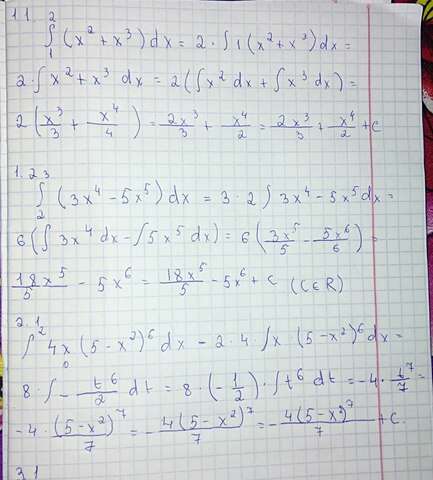 1.1. 2
∫₁² (x² + x³) dx = 2 · ∫ 1 (x² + x³) dx =
2 · ∫ x² + x³ dx = 2 (∫ x² dx + ∫ x³ dx) =
2 (x³/3 + x⁴/4) = 2x³/3 + x⁴/2 = 2x³/3 + x⁴/2 + C
1.2. 3
∫₂³ (3x⁴ - 5x⁵) dx = 3 · 2 ∫ 3x⁴ - 5x⁵ dx =
6 (∫ 3x⁴ dx - ∫ 5x⁵ dx) = 6 (3x⁵/5 - 5x⁶/6) =
18x⁵/5 - 5x⁶ = 18x⁵/5 - 5x⁶ + C (C∈R)
2.1
∫₀² 4x (5 - x²)⁶ dx - 2 · 4 · ∫ x (5 - x²)⁶ dx =
8 · ∫ - t⁶/2 dt = 8 · (-1/2) · ∫ t⁶ dt = -4 · t⁷/7 =
-4 · (5 - x²)⁷/7 = - 4(5 - x²)⁷/7 = - 4(5 - x²)⁷/7 + C.
3.1